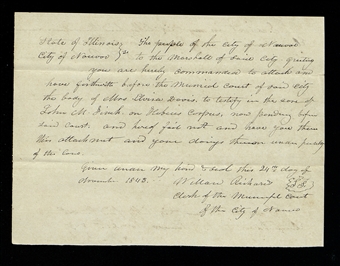 State of Illinois } The people of the City of Nauvoo
City of Nauvoo } to the Marshall of said City greeting
you are hereby commanded to attach and
have forthwith before the Municipal Court of said City
the body of Mrs Elvira Davis. to testify in the
John M. Finch on Habeas Corpus, now pending before
said court. and herof fail not and have you then
this attachment and your doings thereon under penalty
of the law.
Given under my hand & seal this 24th day of
November 1843. Willard Richards
Clerk of the Municipl Court
of the City of Nauvoo